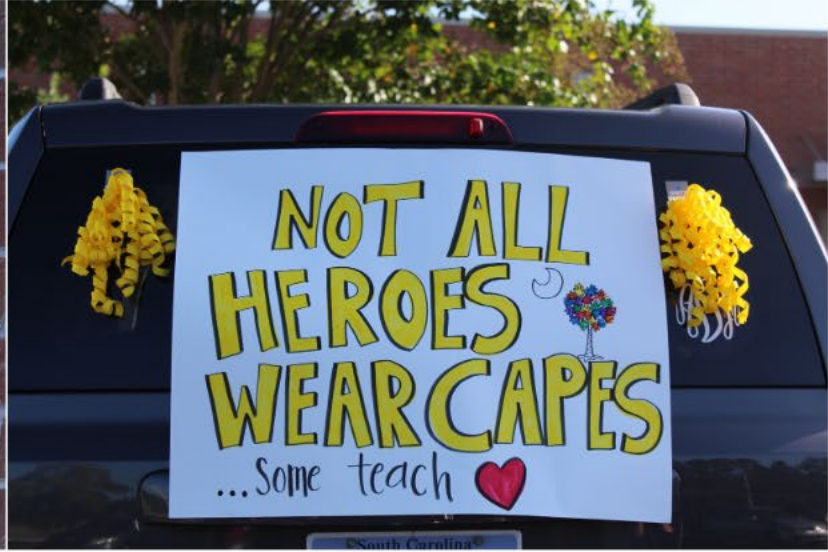 NOT ALL
HEROES
WEAR CAPES
...some teach
South Carolina